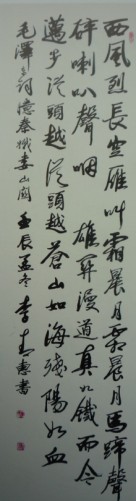 西風烈長空雁叫霜晨月霜晨月馬蹄聲
碎喇叭聲咽 雄關漫道真如鐵而今
邁步從頭越從頭越蒼山如海殘陽如血
毛澤東詞憶秦娥婁山關 壬辰孟冬 李春惠書